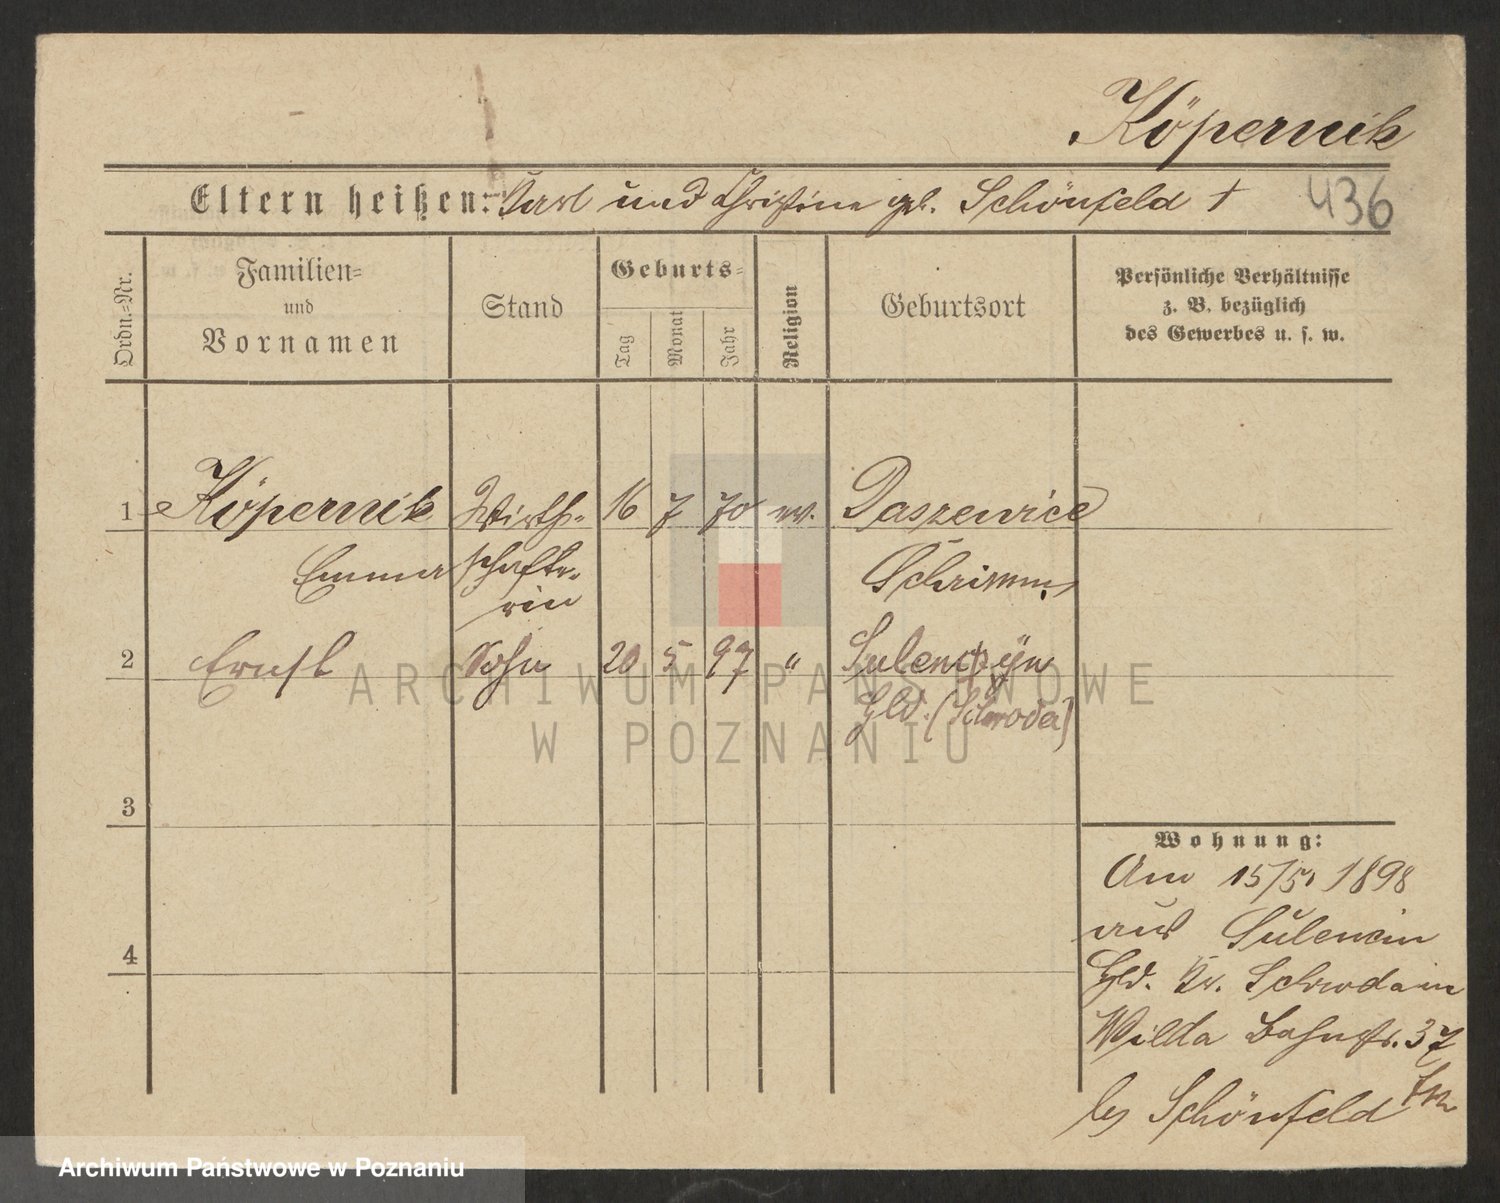 Köpernik
Eltern heißen: Karl und Christine geb. Schönfeld †
436
Ordn.=Nr.
Familien=
und
Vornamen
Stand
Geburts=
Tag
Monat
Jahr
Religion
Geburtsort
Persönliche Verhältnisse
z. B. bezüglich
des Gewerbes u. s. w.
1 Köpernik Wirth- 16 7 70 ev. Daszewice
Emma schafte- Schrimm
rin
2 Ernst Sohn 20 5 97 " Sulencyn
Gld. (Schroda)
ARCHIWUM PAŃSTWOWE
W POZNANIU
3
4
Wohnung:
Am 15/5 1898
aus Sulencin
Gld. Kr. Schroda in
Wilda Bahnstr. 37
bei Schönfeld
Archiwum Państwowe w Poznaniu